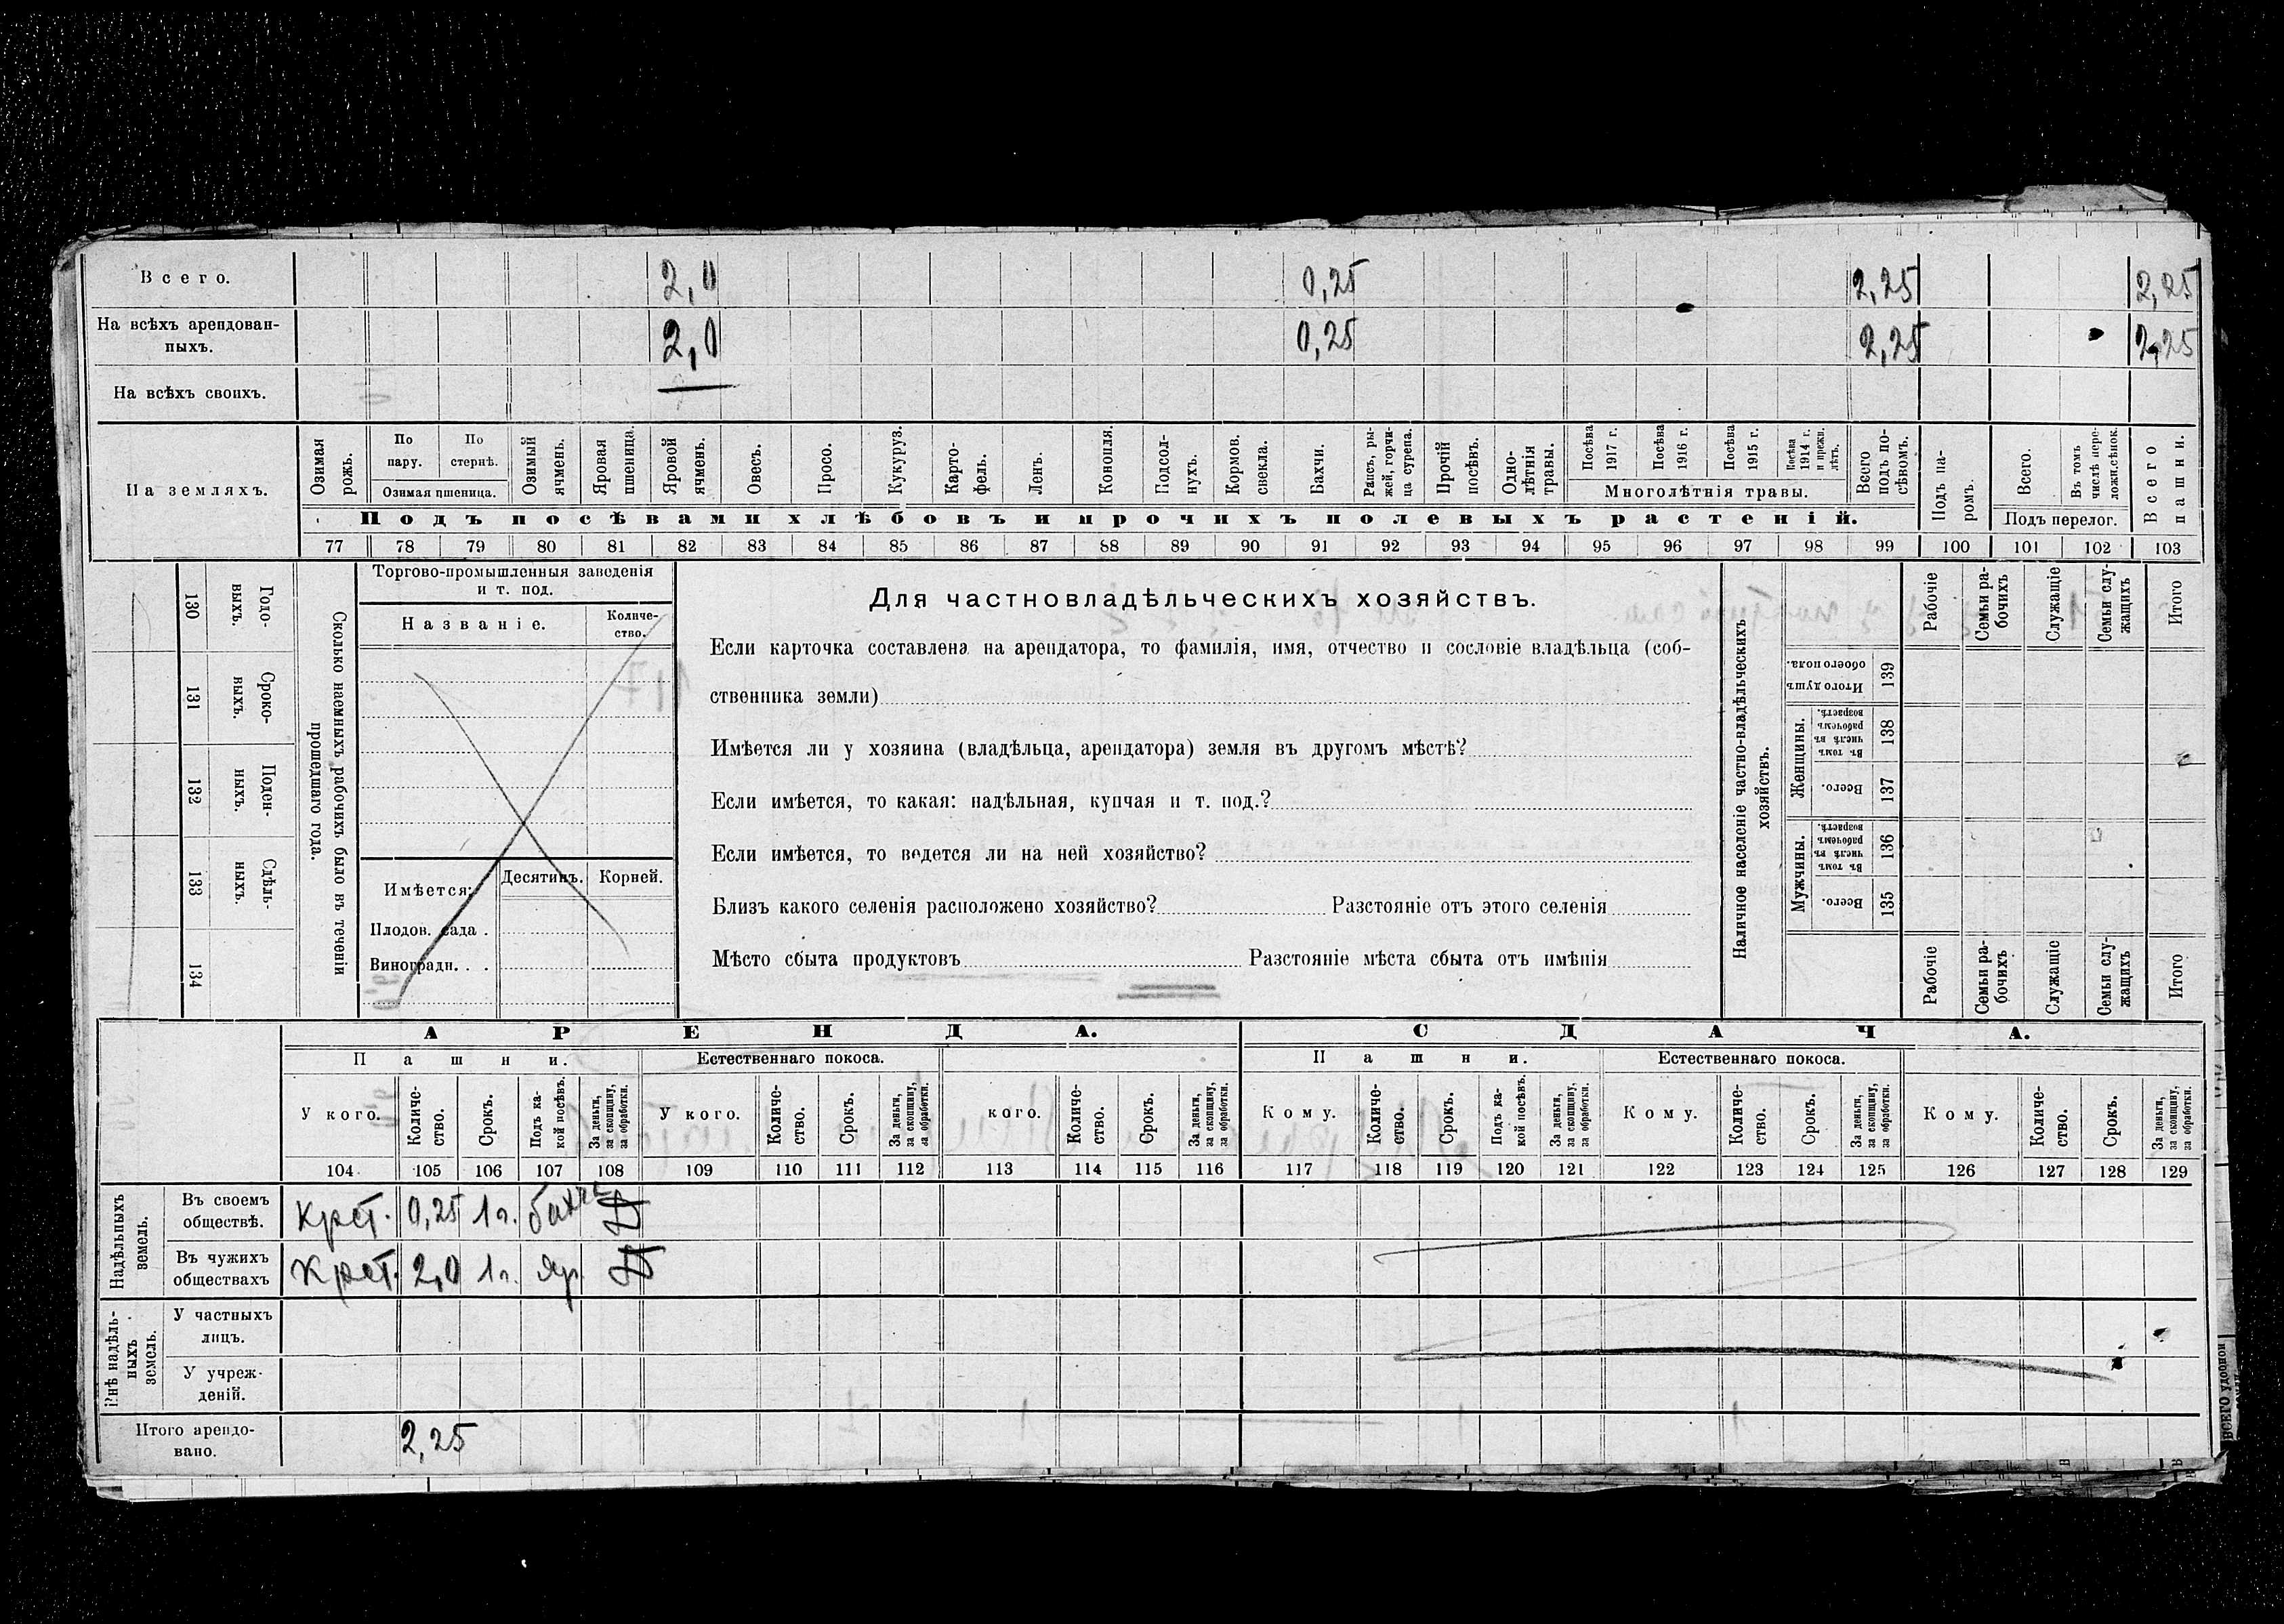 Всего. 2,0 0,25 2,25 2,25
На всѣхъ арендован-
ныхъ. 2,0 0,25 2,25 2,25
На всѣхъ своихъ.
На земляхъ.
Озимая рожь.
По пару.
По стернѣ.
Озимая пшеница.
Озимый ячмень.
Яровая пшеница.
Яровой ячмень.
Овесъ.
Просо.
Кукуруз.
Карто-
фель.
Ленъ.
Конопля.
Подсол-
нухъ.
Кормов.
свекла.
Бахчи.
Рапсъ, ры-
жей, горчи-
ца сурепа.
Прочій
посѣвъ.
Одно-
лѣтнія
травы.
Посѣва
1917 г.
Посѣва
1916 г.
Посѣва
1915 г.
Посѣва
1914 г.
и прежн.
лѣтъ.
Многолѣтнія травы.
Всего
подъ по-
сѣвомъ.
Подъ па-
ромъ.
Всего.
Въ томъ
числѣ пере-
ложн.сѣнок.
Подъ перелог.
Всего
пашни.
Подъ посѣвами хлѣбовъ и прочихъ полевыхъ растеній.
77 78 79 80 81 82 83 84 85 86 87 88 89 90 91 92 93 94 95 96 97 98 99 100 101 102 103
Годо-
выхъ.
130
Сроко-
выхъ.
131
Поден-
ныхъ.
132
Сдѣль-
ныхъ.
133
134
Сколько наемныхъ рабочихъ было въ теченіи
прошедшаго года.
Торгово-промышленныя заведенія
и т. под.
Названіе.
Количе-
ство.
Имѣется:
Десятинъ.
Корней.
Плодов. сада .
Виноградн. . .
Для частновладѣльческихъ хозяйствъ.
Если карточка составлена на арендатора, то фамилія, имя, отчество и сословіе владѣльца (соб-
ственника земли)
Имѣется ли у хозяина (владѣльца, арендатора) земля въ другомъ мѣстѣ?
Если имѣется, то какая: надѣльная, купчая и т. под.?
Если имѣется, то ведется ли на ней хозяйство?
Близъ какого селенія расположено хозяйство? Разстояніе отъ этого селенія
Мѣсто сбыта продуктовъ Разстояніе мѣста сбыта отъ имѣнія
Наличное населеніе частно-владѣльческихъ
хозяйствъ.
Итого душъ
обоего пола.
139
Женщины.
Въ томъ
числѣ въ
рабочемъ
возрастѣ.
138
Всего.
137
Мужчины.
Въ томъ
числѣ въ
рабочемъ
возрастѣ.
136
Всего.
135
Рабочіе
Семьи ра-
бочихъ
Служащіе
Семьи слу-
жащихъ
Итого
Рабочіе
Семьи ра-
бочихъ
Служащіе
Семьи слу-
жащихъ
Итого
АРЕНДА. СДАЧА.
Пашни. Естественнаго покоса. Пашни. Естественнаго покоса.
У кого.
Количе-
ство.
Срокъ.
Подъ ка-
кой посѣвъ.
За деньги,
за скопщину,
за обработки.
У кого.
Количе-
ство.
Срокъ.
За деньги,
за скопщину,
за обработки.
кого.
Количе-
ство.
Срокъ.
За деньги,
за скопщину,
за обработки.
Кому.
Количе-
ство.
Срокъ.
Подъ ка-
кой посѣвъ.
За деньги,
за скопщину,
за обработки.
Кому.
Количе-
ство.
Срокъ.
За деньги,
за скопщину,
за обработки.
Кому.
Количе-
ство.
Срокъ.
За деньги,
за скопщину,
за обработки.
104 105 106 107 108 109 110 111 112 113 114 115 116 117 118 119 120 121 122 123 124 125 126 127 128 129
Надѣльныхъ
земель.
Въ своемъ
обществѣ. Крст. 0,25 1 г. бахч. Д
Въ чужихъ
обществахъ Крст. 2,0 1 г. яр. Д
Внѣ надѣль-
ныхъ
земель.
У частныхъ
лицъ.
У учреж-
деній.
Итого арендо-
вано. 2,25